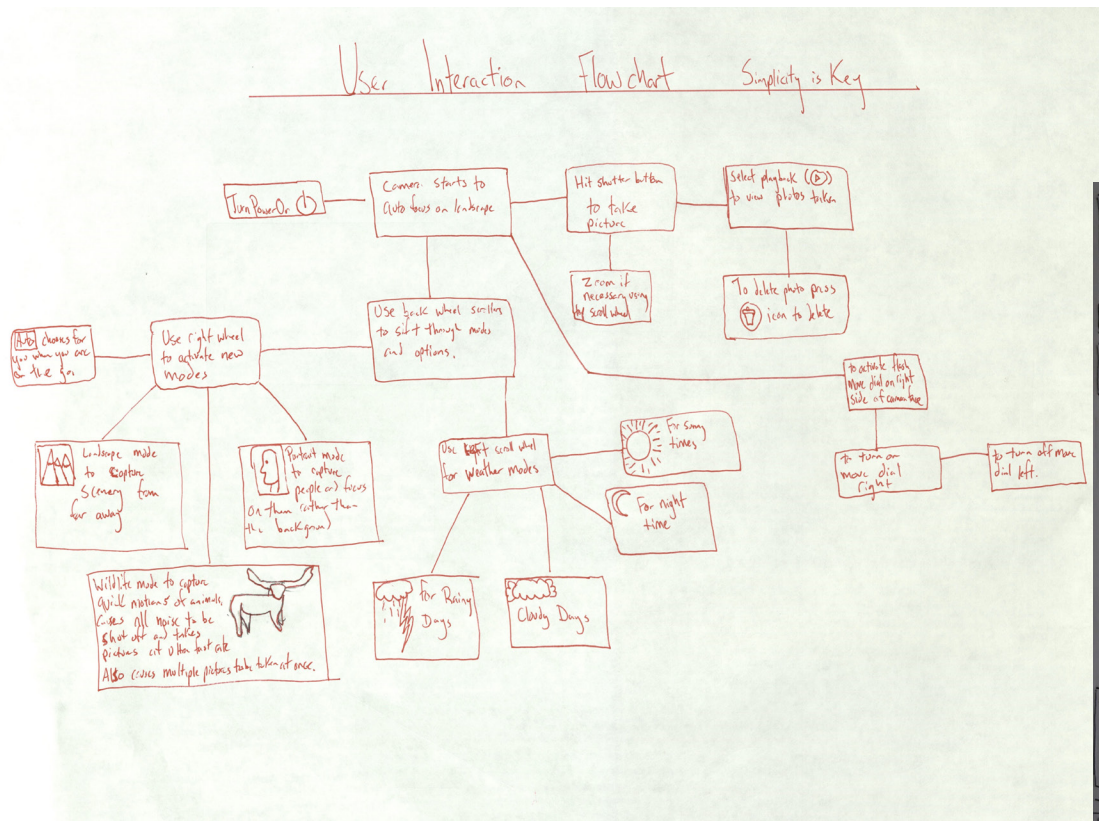 User Interaction Flowchart Simplicity is Key
Turn Power On
Camera starts to
auto focus on landscape
Hit shutter button
to take
picture
Select playback
to view photos taken
Zoom if
necessary using
by scroll wheel
To delete photo press
icon to delete
Use back wheel scrolling
to sift through modes
and options.
Use right wheel
to activate new
modes
Auto chooses for
you when you are
on the go.
Landscape mode
to capture
scenery from
far away
Portrait mode
to capture
people and focus
on them rather than
the background
Wildlife mode to capture
quick motions of animals.
Causes all noise to be
shut off and takes
pictures at ultra fast rate
Also causes multiple pictures to be taken at once.
Use left scroll wheel
for Weather modes
For sunny
times
For night
time
For Rainy
Days
Cloudy Days
to activate flash
move dial on right
side of camera
to turn on
move dial
right
to turn off move
dial left.